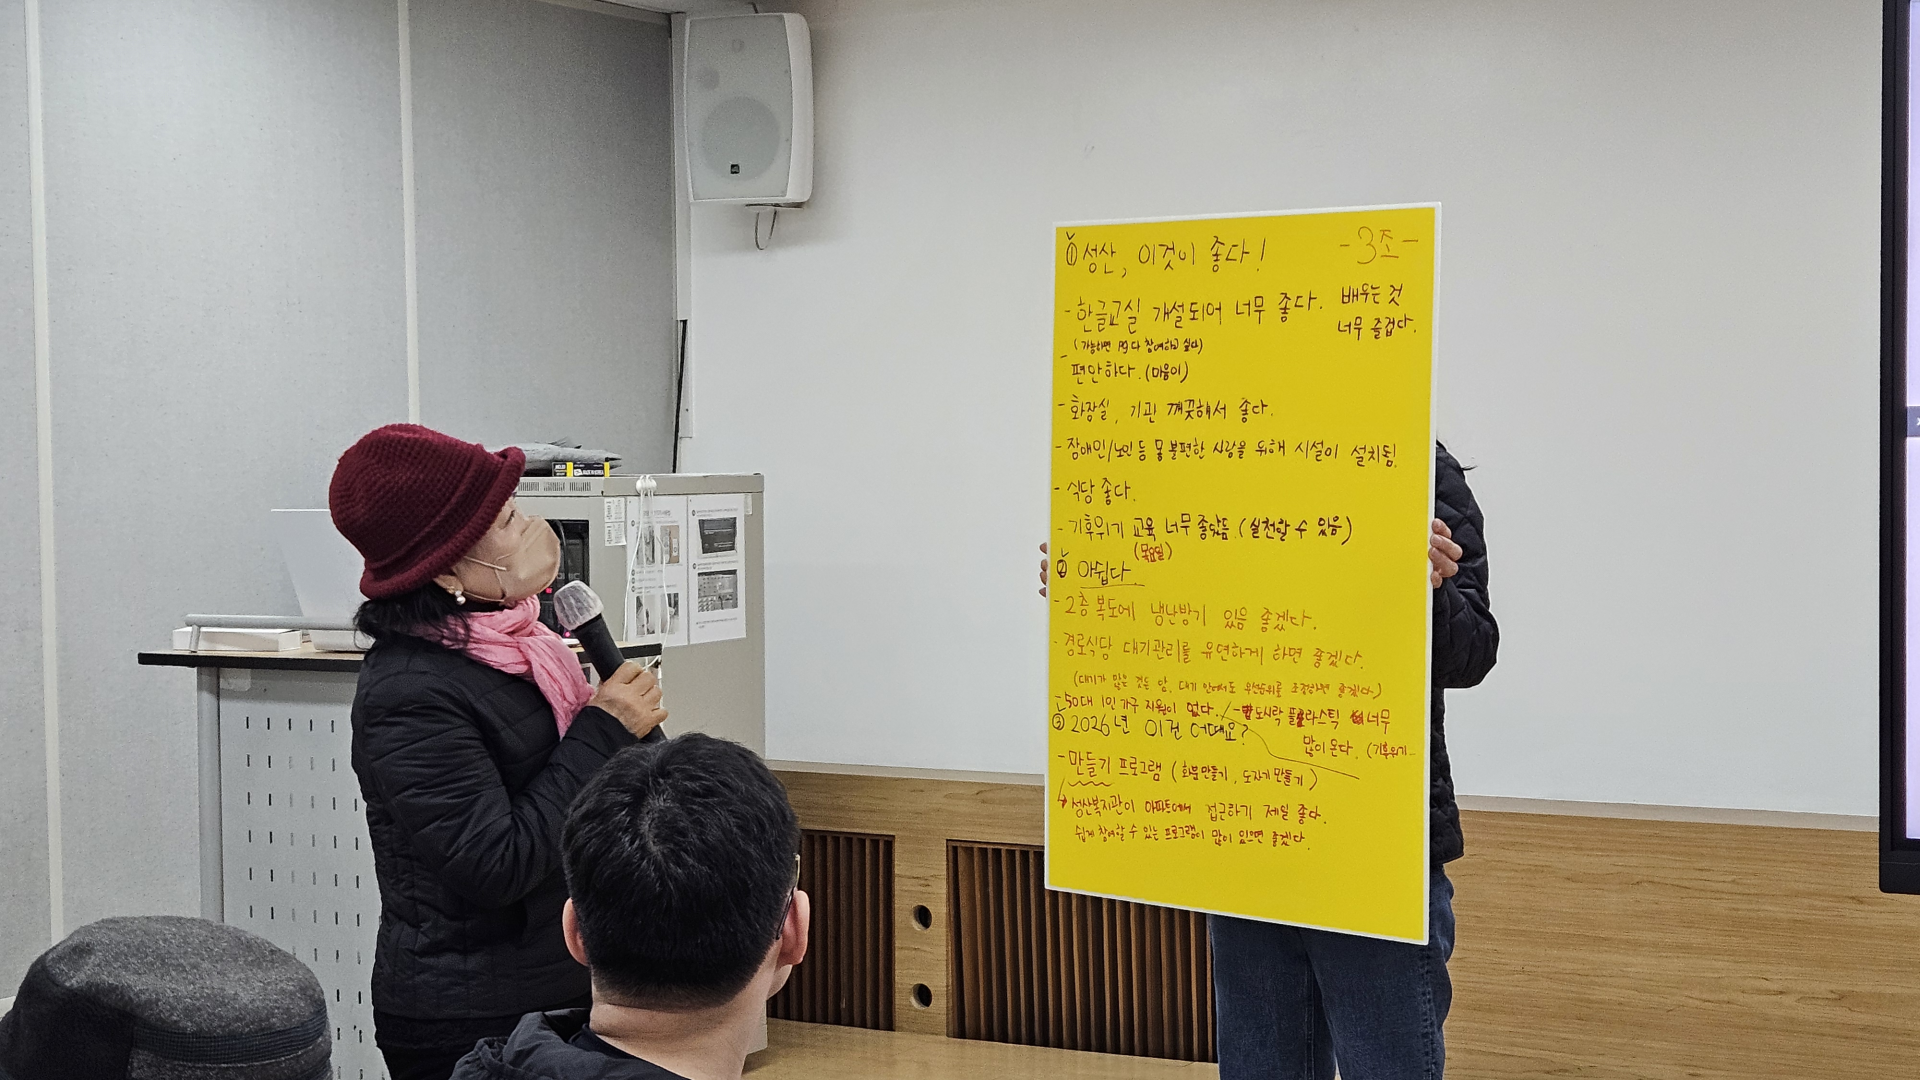 ① 성산, 이것이 좋다!
-3조-
- 한글교실 개설되어 너무 좋다.
배우는 것
너무 즐겁다.
(가능하면 다 참여하고 싶다)
- 편안하다. (마음이)
- 화장실, 기관 깨끗해서 좋다.
- 장애인/노인 등 몸 불편한 사람을 위해 시설이 설치됨.
- 식당 좋다.
- 기후위기 교육 너무 좋았듬. (실천할 수 있음)
(목요일)
② 아쉽다.
- 2층 복도에 냉난방기 있음 좋겠다.
- 경로식당 대기관리를 유연하게 하면 좋겠다.
(대기가 많은 것은 암. 대기 안에서도 우선순위를 조정하면 좋겠다.)
- 50대 1인 가구 지원이 없다.
- 도시락 플라스틱 너무
많이 온다. (기후위기...
③ 2026년 이건 어때요?
- 만들기 프로그램 (화분만들기, 도자기 만들기)
성산복지관이 아파트에서 접근하기 제일 좋다.
쉽게 참여할 수 있는 프로그램이 많이 있으면 좋겠다.